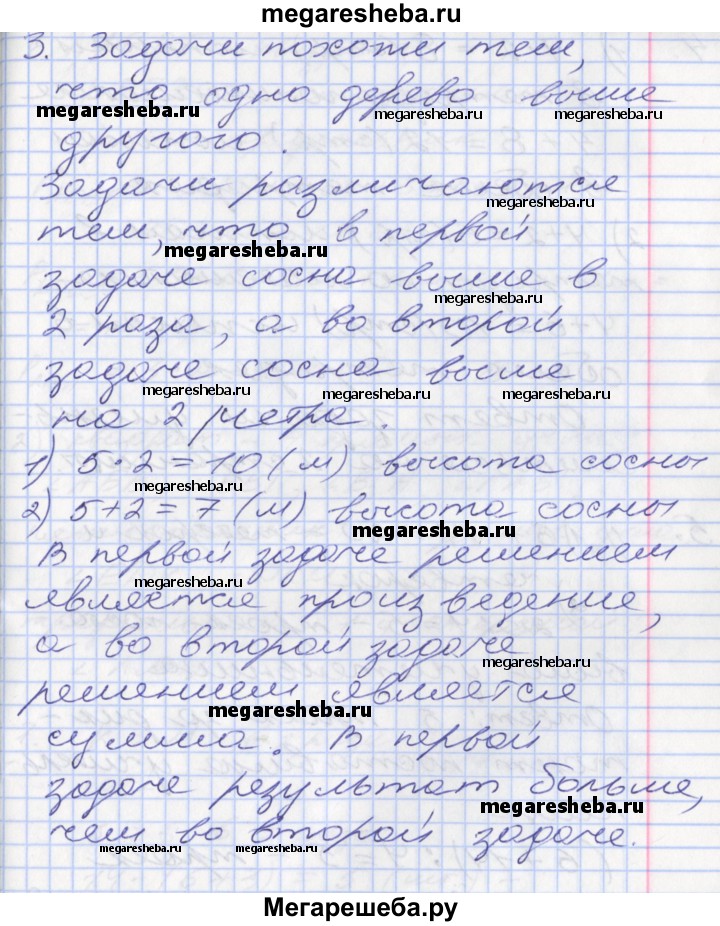 megaresheba.ru
3. Задачи похожи тем,
что одно дерево выше
megaresheba.ru megaresheba.ru megaresheba.ru
другого.
Задачи различаются
megaresheba.ru
тем, что в первой
megaresheba.ru
задаче сосна выше в
megaresheba.ru
2 раза, а во второй
задаче сосна выше
megaresheba.ru megaresheba.ru
на 2 метра.
1) 5·2=10 (м) высота сосны
megaresheba.ru
2) 5+2=7 (м) высота сосны
megaresheba.ru
В первой задаче решением
megaresheba.ru
является произведение,
а во второй задаче
megaresheba.ru
решением является
megaresheba.ru
сумма. В первой
задаче результат больше,
megaresheba.ru
чем во второй задаче.
megaresheba.ru megaresheba.ru megaresheba.ru
Мегарешеба.ру